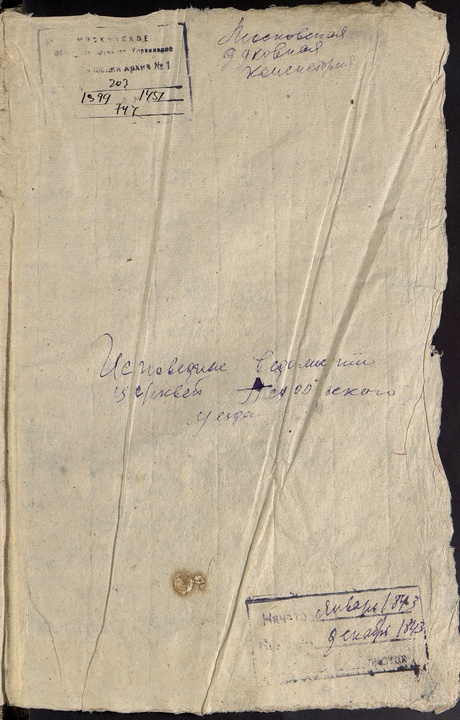 МОСКОВСКОЕ
Архив № 1
203
1399 1451
747
Московская
духовная
консистория
Исповедные ведомости
церквей Подольского
уезда
Начато Январь 1843
декабрь 1843